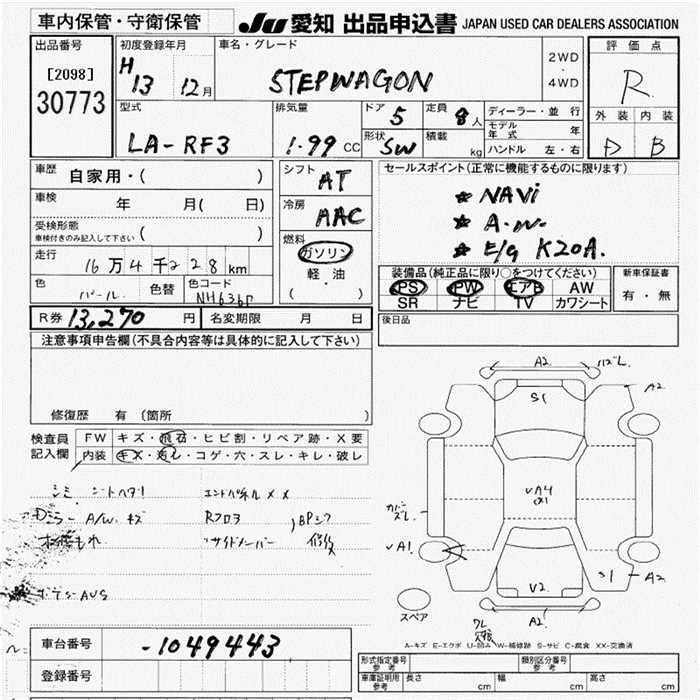 車内保管・守衛保管 JU愛知 出品申込書 JAPAN USED CAR DEALERS ASSOCIATION
出品番号 初度登録年月 車名・グレード 評価点
[2098] H 13 12月 STEPWAGON 2WD・4WD R
30773 型式 排気量 ドア 5 定員 8人 ディーラー・並行 外装 内装
モデル年式 年
LA-RF3 1.99 CC 形状 SW 積載 kg ハンドル 左・右 D B
車歴 自家用・( ) シフト AT セールスポイント(正常に機能するものに限ります)
車検 年 月( 日) 冷房 AAC ★ NAVi
受検形態 車検付きのみ記入して下さい ( ) ★ A.W.
燃料 ガソリン ★ E/G K20A.
走行 16万4千228km 軽・油 装備品(純正品に限り○をつけてください) 新車保証書
色 パール 色替 色コード NH636P ( ) PS PW エアB AW 有・無
SR ナビ TV カワシート
R券 13,270円 名変期限 月 日 後日品
注意事項申告欄(不具合内容等は具体的に記入して下さい)
修復歴 有 (箇所 )
検査員記入欄 FW キズ・飛石・ヒビ割・リペア跡・X要
内装 キズ・汚レ・コゲ・穴・スレ・キレ・破レ
シミ エンドパネル XX
Dミラー A/W キズ Rフロア
サイドメンバー
A2 バズレ
A2
S1
VA4
X1
VA1
S1 A2
V2
A2
スペア
A-キズ E-エクボ U-凹み W-補修跡 S-サビ C-腐食 XX-交換済
車台番号 -1049443
登録番号
形式指定番号 参考 類別区分番号 参考
車庫証明用 参考 長さ cm 幅 cm 高さ cm